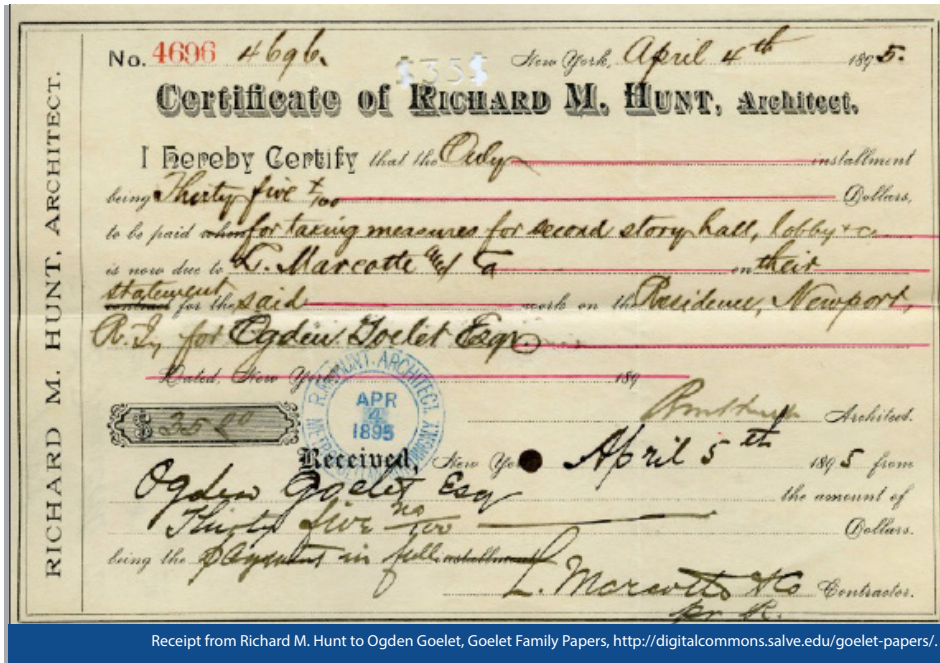 No. 4696 4696. New York, April 4th 1895.
$35$
Certificate of RICHARD M. HUNT, Architect.
I Hereby Certify that the Only installment
being Thirty five /100 Dollars,
to be paid when for taking measures for second story hall, lobby &c
is now due to L. Marcotte and Co on their
statement contract for the said work on the Residence, Newport,
R.I., for Ogden Goelet Esqr.
Dated, New York 189
$ 35.00
R. M. HUNT, ARCHITECT,
APR
4
1895
Architect.
Received, New York April 5th 1895 from
Ogden Goelet Esq the amount of
Thirty five no/100 Dollars.
being the payment in full installment
L. Marcotte & Co Contractor.
pr
RICHARD M. HUNT, ARCHITECT.
Receipt from Richard M. Hunt to Ogden Goelet, Goelet Family Papers, http://digitalcommons.salve.edu/goelet-papers/.